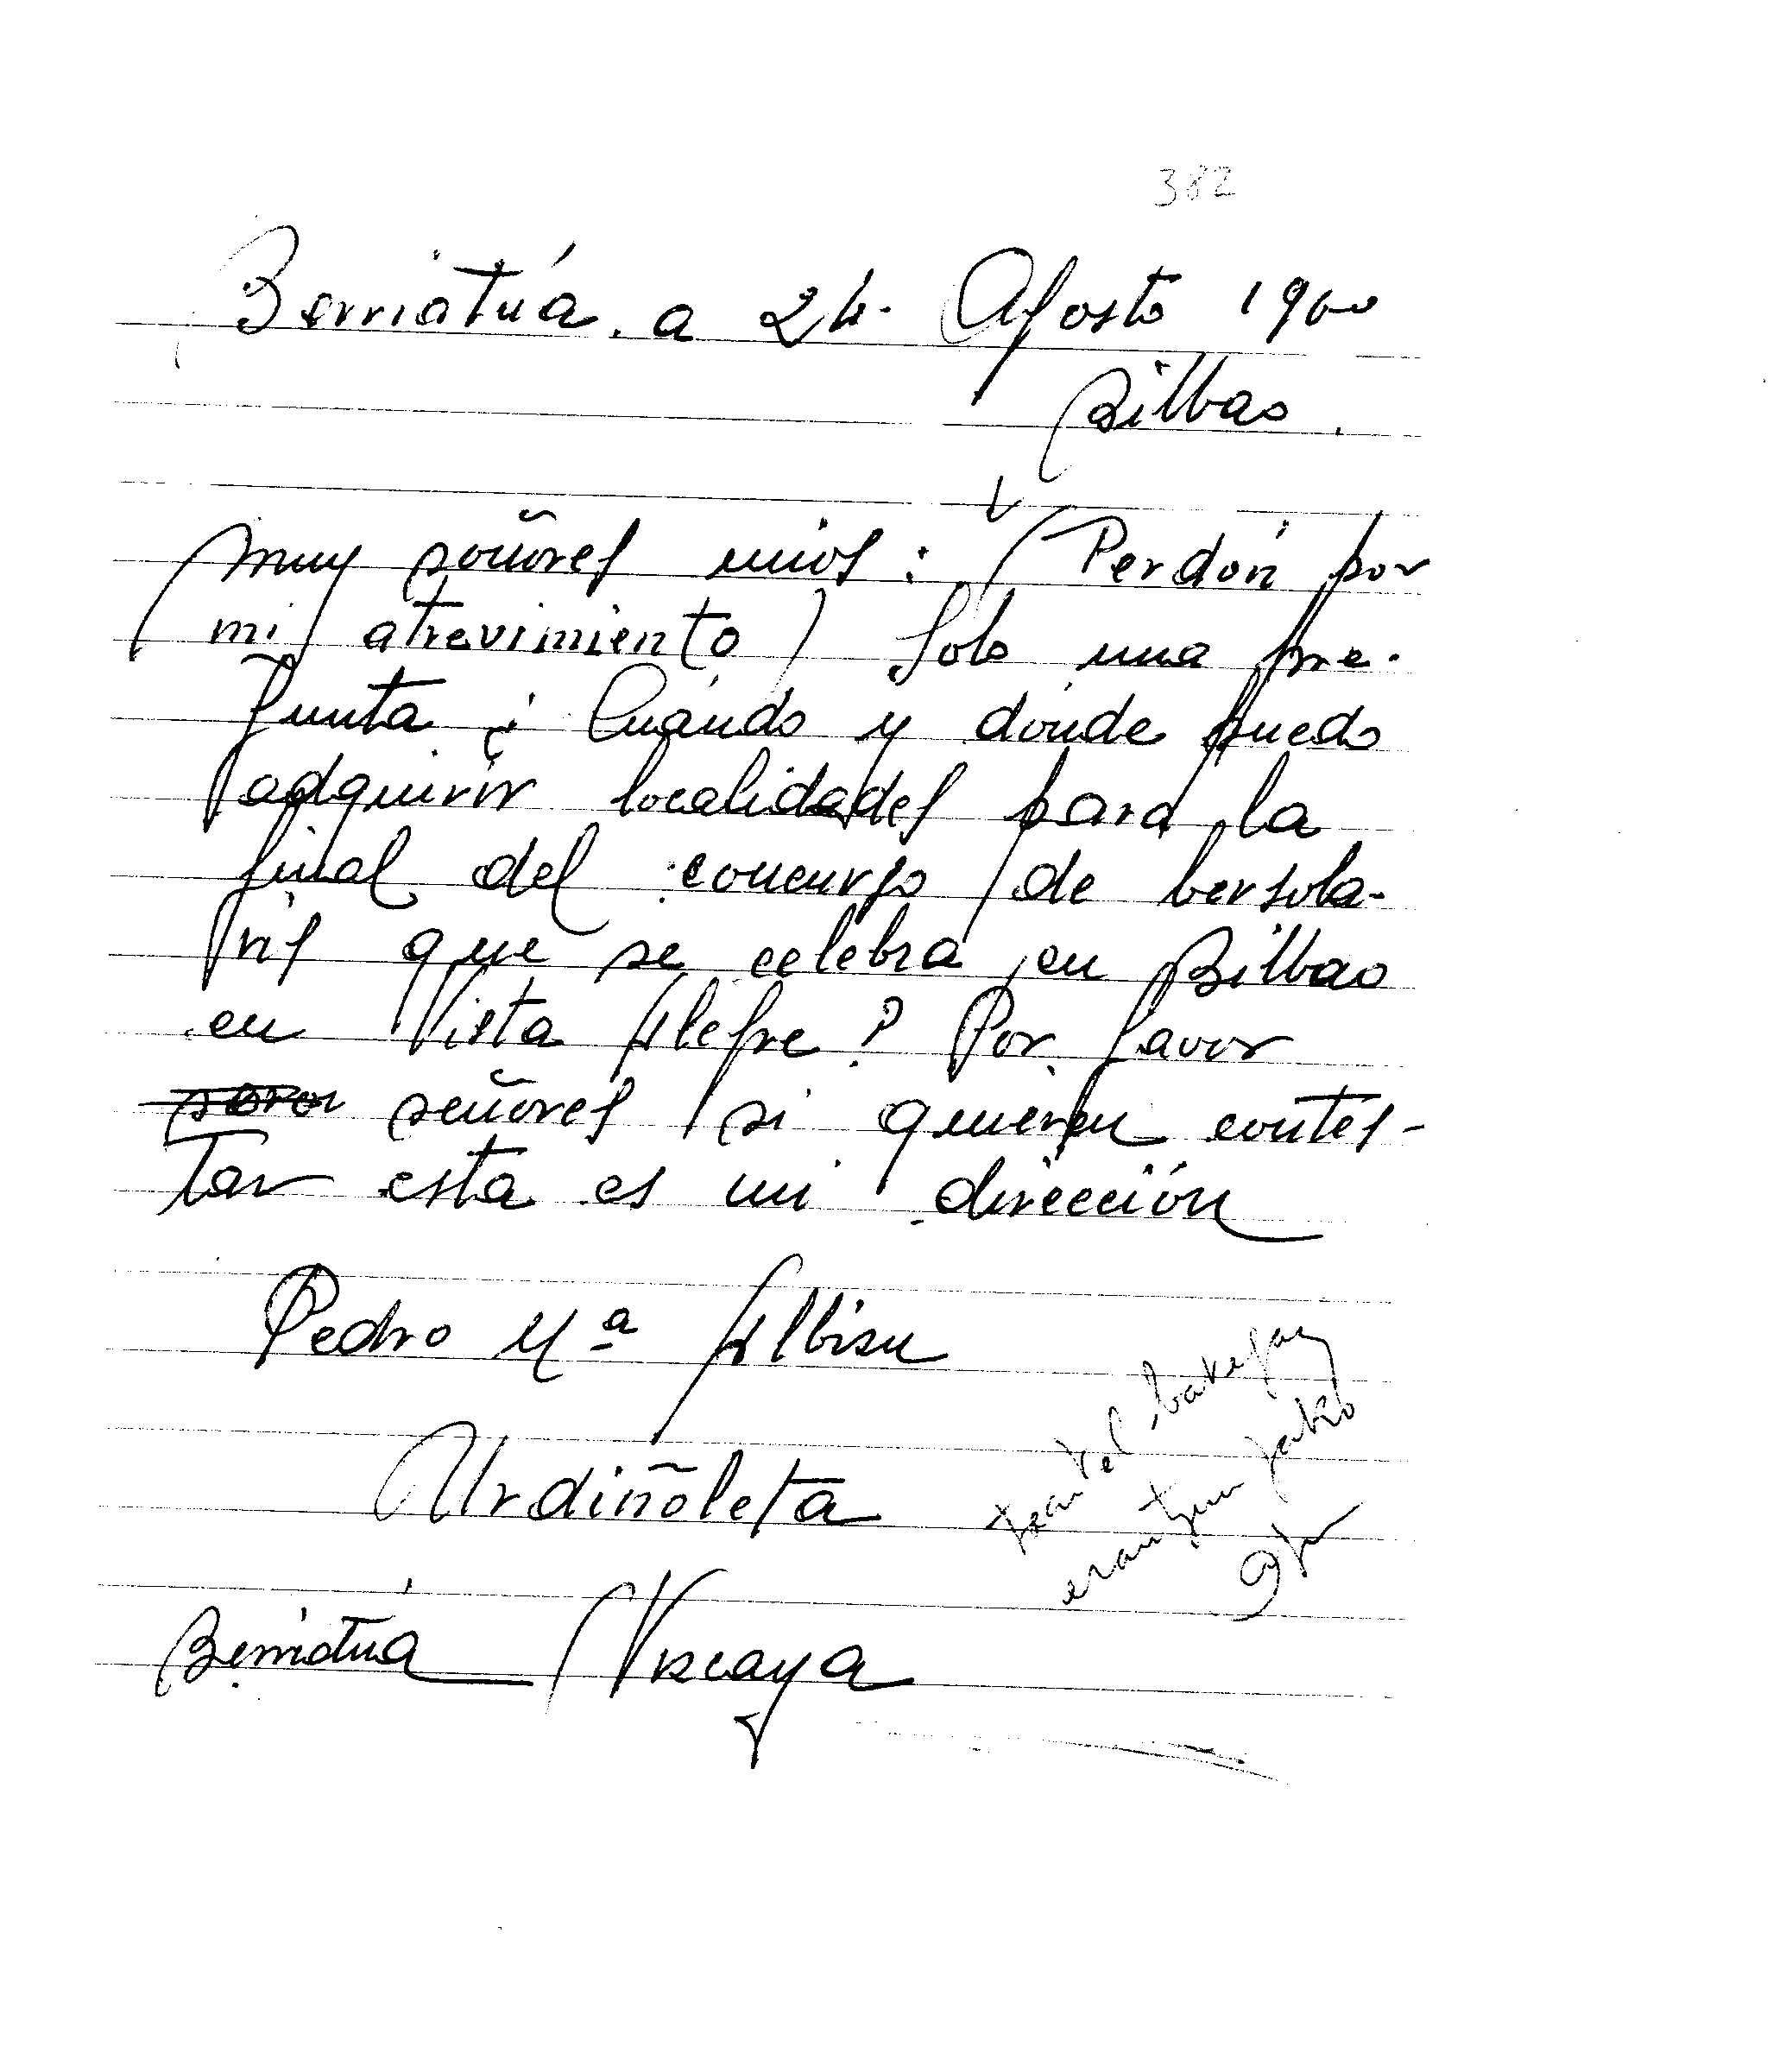 382
Berriatúa. a 24. Agosto 1960
Bilbao.
Muy señores mios: (Perdón por
mi atrevimiento) Solo una pre-
gunta ¿Cuándo y dónde puedo
adquirir localidades para la
final del concurso de bersola-
ris que se celebra en Bilbao
en Vista Alegre? Por favor
señores si quieren contes-
tar esta es mi dirección
Pedro Mª Albisu
Urdiñoleta
Berriatúa Vizcaya
erantzun jako